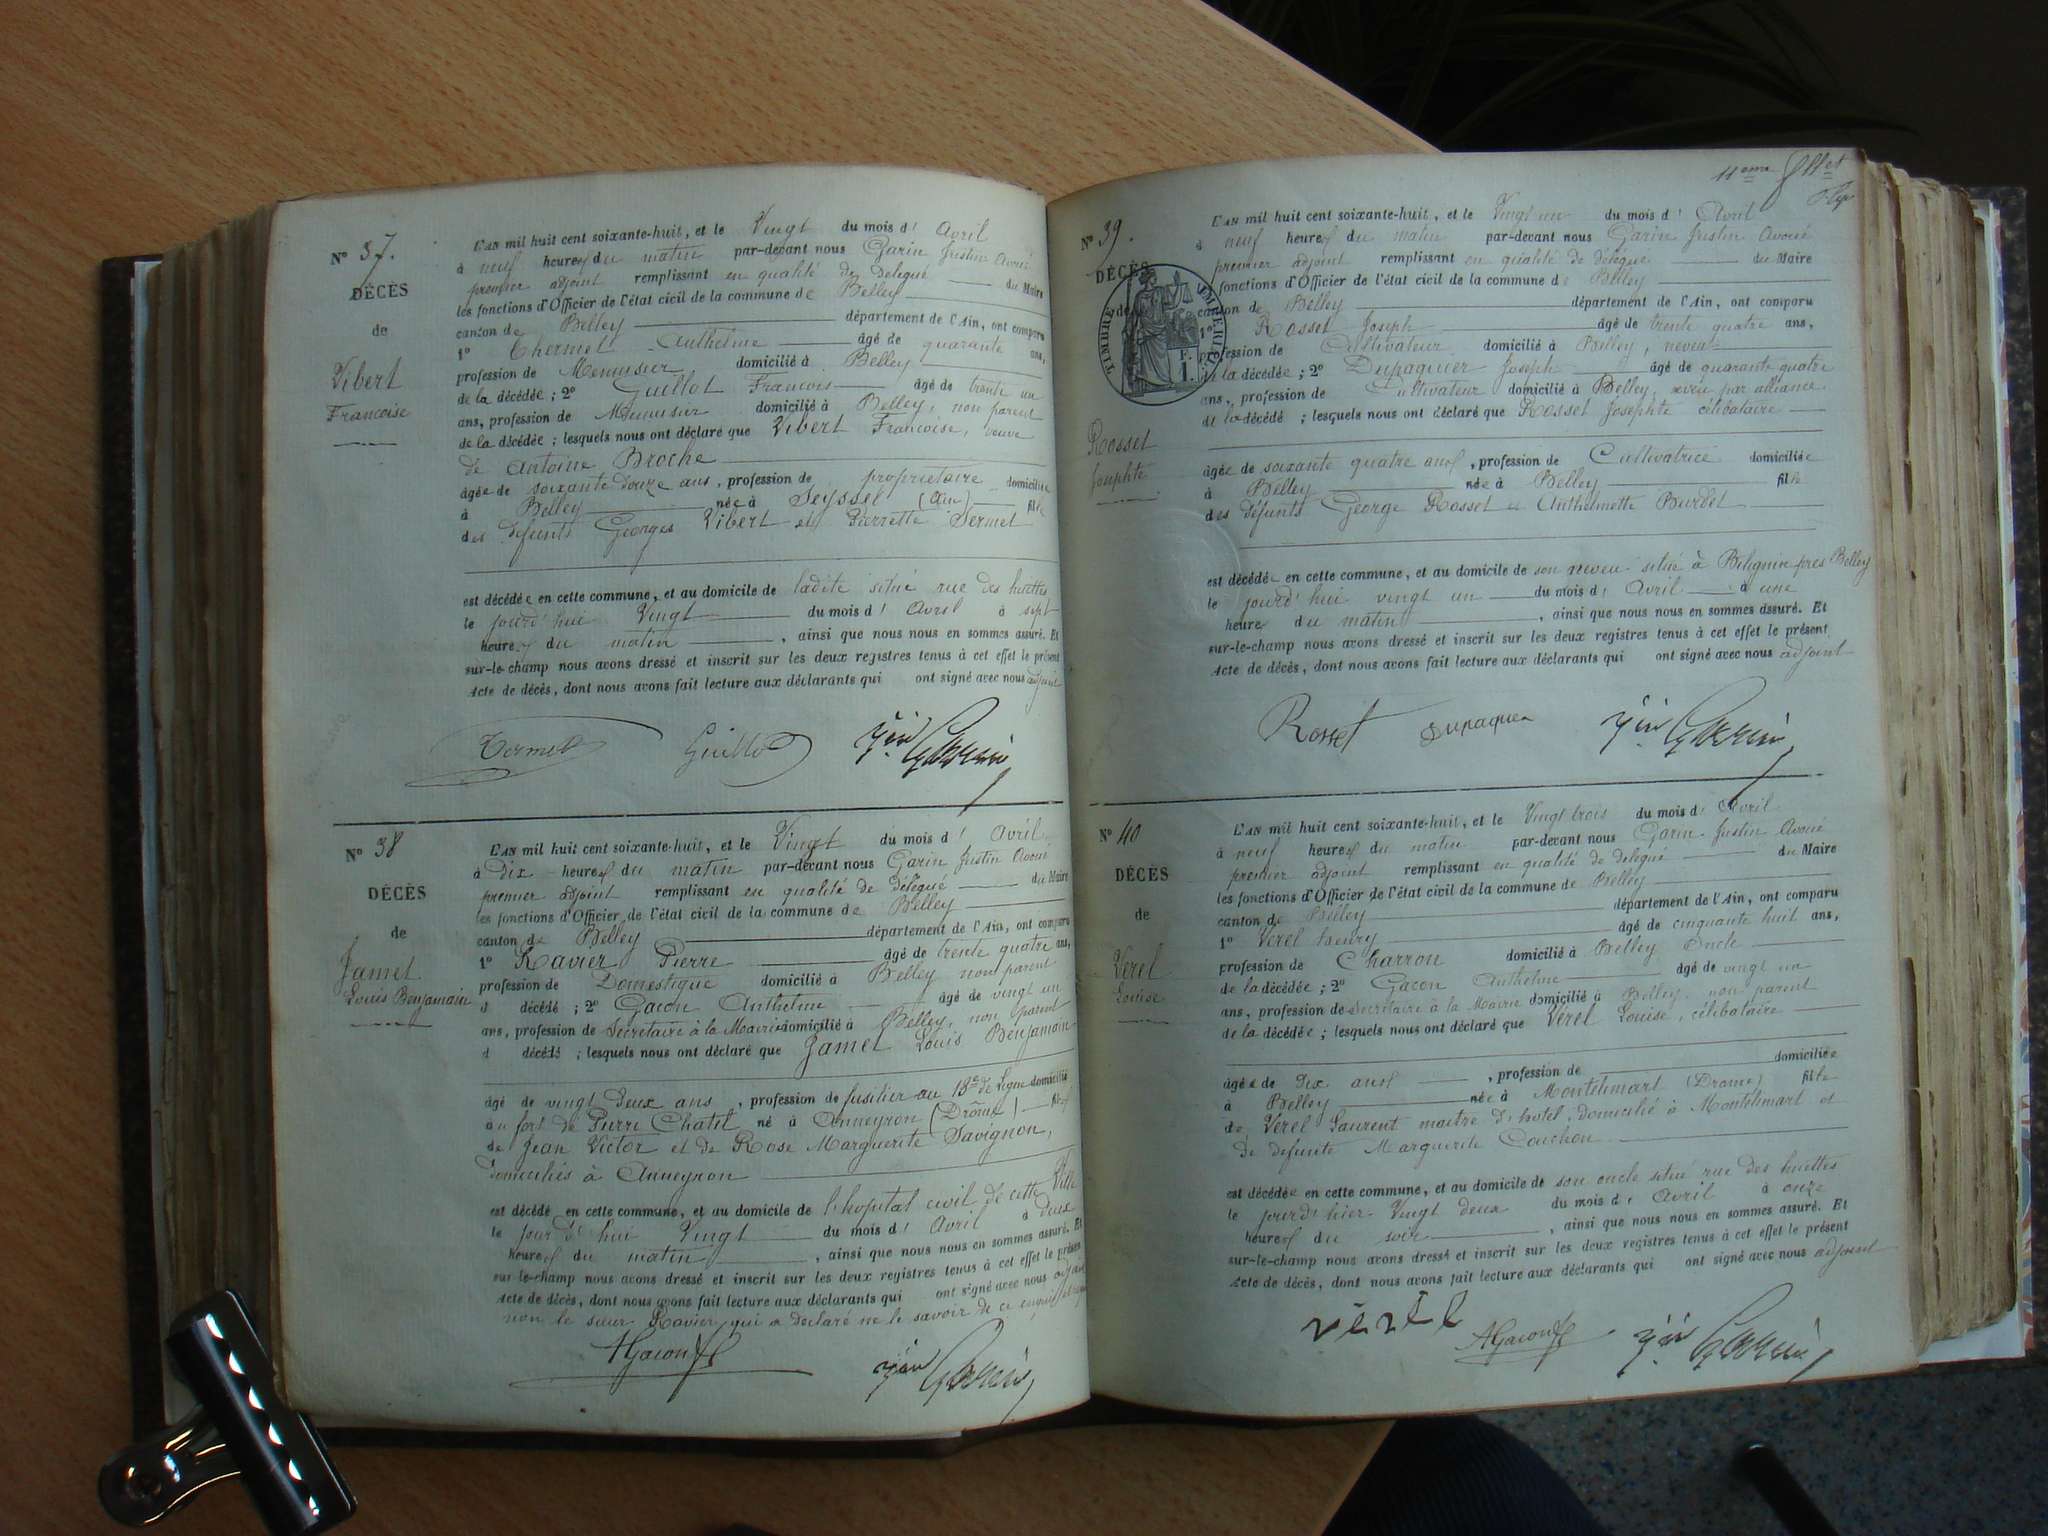 N° 37.
DÉCÈS
de
Vibert
Francoise
L'AN mil huit cent soixante-huit, et le Vingt du mois d' Avril
à neuf heures du matin par-devant nous Garin Justin Avoué
premier adjoint remplissant en qualité de Délégué du Maire
les fonctions d'Officier de l'état civil de la commune de Belley
canton de Belley département de l'Ain, ont comparu
1° Thermet Anthelme âgé de quarante ans,
profession de Menuisier domicilié à Belley
de la décédée ; 2° Guillot Francois âgé de trente un
ans, profession de Menuisier domicilié à Belley, non parent
de la décédée ; lesquels nous ont déclaré que Vibert Francoise, veuve
de Antoine Broche
âgée de soixante douze ans, profession de propriétaire domiciliée
à Belley née à Seyssel (Ain) fille
des défunts Georges Vibert et Pierrette Sermet
est décédée en cette commune, et au domicile de ladite situé rue des huettes
le jourd'hui Vingt du mois d' Avril à sept
heures du matin , ainsi que nous nous en sommes assuré. Et
sur-le-champ nous avons dressé et inscrit sur les deux registres tenus à cet effet le présent
Acte de décès, dont nous avons fait lecture aux déclarants qui ont signé avec nous adjoint
Termet Guillot Jin Garin
N° 38
DÉCÈS
de
Jamet
Louis Benjamain
L'AN mil huit cent soixante-huit, et le Vingt du mois d' Avril
à Dix heures du matin par-devant nous Garin Justin Avoué
premier adjoint remplissant en qualité de délégué du Maire
les fonctions d'Officier de l'état civil de la commune de Belley
canton de Belley département de l'Ain, ont comparu
1° Ravier Pierre âgé de trente quatre ans,
profession de Domestique domicilié à Belley non parent
d décédé ; 2° Gacon Anthelme âgé de vingt un
ans, profession de Secrétaire à la Mairie domicilié à Belley, non parent
d décédé ; lesquels nous ont déclaré que Jamet Louis Benjamain
âgé de vingt deux ans , profession de fusilier au 13e de Ligne domicilié
au fort de Pierre Chatel né à Anneyron (Drôme) fils
de Jean Victor et de Rose Marguerite Savignon,
domiciliés à Anneyron
est décédé en cette commune, et au domicile de l'hopital civil de cette Ville
le jour d'hui Vingt du mois d' Avril à deux
heures du matin , ainsi que nous nous en sommes assuré. Et
sur-le-champ nous avons dressé et inscrit sur les deux registres tenus à cet effet le présent
Acte de décès, dont nous avons fait lecture aux déclarants qui ont signé avec nous adjoint
non le sieur Ravier qui a déclaré ne le savoir de ce enquis
AGacon Jin Garin
11eme
N° 39.
DÉCÈS
de
TIMBRE IMPERIAL
1 F.
Rosset
Josephte
L'AN mil huit cent soixante-huit, et le Vingt un du mois d' Avril
à neuf heures du matin par-devant nous Garin Justin Avoué
premier adjoint remplissant en qualité de délégué du Maire
fonctions d'Officier de l'état civil de la commune de Belley
canton de Belley département de l'Ain, ont comparu
1° Rosset Joseph âgé de trente quatre ans,
profession de Cultivateur domicilié à Belley, neveu
de la décédée ; 2° Dupaquier Joseph âgé de quarante quatre
ans, profession de Cultivateur domicilié à Belley, neveu par alliance
de la décédé ; lesquels nous ont déclaré que Rosset Josephte célibataire
âgée de soixante quatre ans , profession de Cultivatrice domiciliée
à Belley née à Belley fille
des défunts George Rosset et Anthelmette Burdet
est décédée en cette commune, et au domicile de son neveu situé à Bélignin près Belley
le jourd'hui vingt un du mois d' Avril à une
heure du matin , ainsi que nous nous en sommes assuré. Et
sur-le-champ nous avons dressé et inscrit sur les deux registres tenus à cet effet le présent
Acte de décès, dont nous avons fait lecture aux déclarants qui ont signé avec nous adjoint
Rosset Dupaquier Jin Garin
N° 40
DÉCÈS
de
Verel
Louise
L'AN mil huit cent soixante-huit, et le Vingt trois du mois d' Avril
à neuf heures du matin par-devant nous Garin Justin Avoué
premier adjoint remplissant en qualité de délégué du Maire
les fonctions d'Officier de l'état civil de la commune de Belley
canton de Belley département de l'Ain, ont comparu
1° Verel henry âgé de cinquante huit ans,
profession de Charron domicilié à Belley Oncle
de la décédée ; 2° Gacon Anthelme âgé de vingt un
ans, profession de secrétaire à la Mairie domicilié à Belley, non parent
de la décédée ; lesquels nous ont déclaré que Verel Louise, célibataire
âgée de Dix ans , profession de domiciliée
à Belley née à Montelimart (Drome) fille
de Verel Laurent maitre d'hotel, domicilié à Montelimart et
de défunte Marguerite Couchon
est décédée en cette commune, et au domicile de son oncle situé rue des huettes
le jourd'hier Vingt deux du mois d' Avril à onze
heures du soir , ainsi que nous nous en sommes assuré. Et
sur-le-champ nous avons dressé et inscrit sur les deux registres tenus à cet effet le présent
Acte de décès, dont nous avons fait lecture aux déclarants qui ont signé avec nous adjoint
verel AGacon Jin Garin